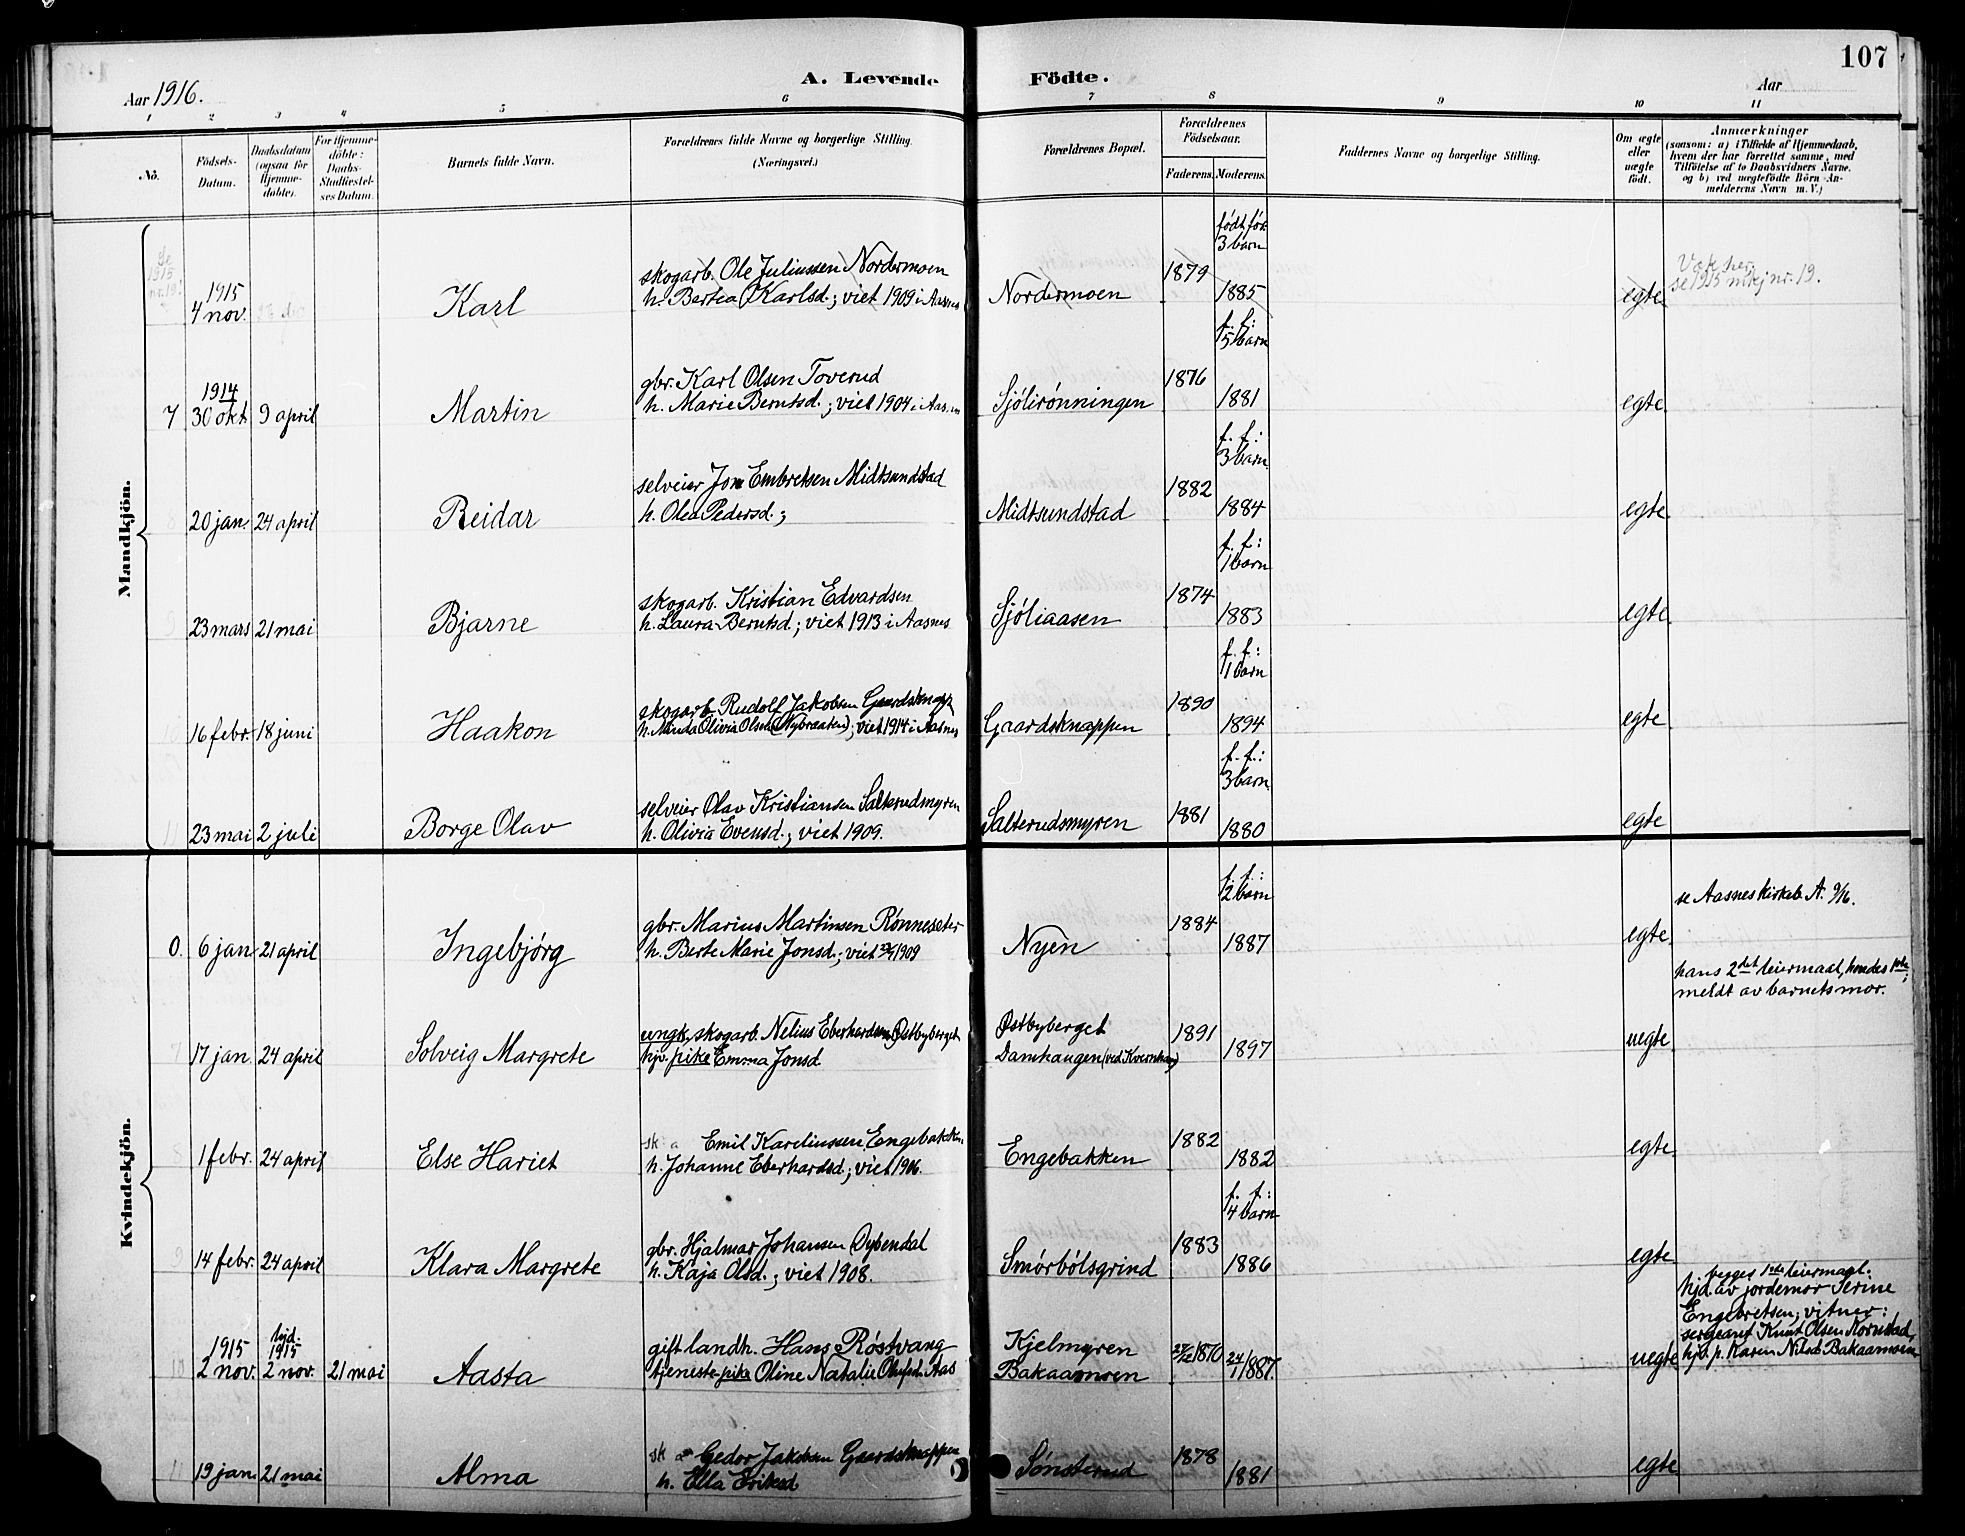 107
Aar 1916.
A. Levende Födte.
Aar
1 2 3 4 5 6 7 8 9 10 11
No.
Födsels-Datum.
Daabsdatum (ogsaa for Hjemme-døbte).
For Hjemme-døbte: Daabs-Stadfæstel-ses Datum.
Barnets fulde Navn.
Forældrenes fulde Navne og borgerlige Stilling. (Næringsvei.)
Forældrenes Bopæl.
Forældrenes Födselsaar.
Faderens. Moderens.
Faddernes Navne og borgerlige Stilling.
Om ægte eller uægte født.
Anmærkninger
(saasom: a) i Tilfælde af Hjemmedaab,
hvem der har forrettet samme, med
Tilføielse af to Daabsvidners Navne,
og b) ved uægtefødte Börn An-
melderens Navn m. V.)
Mandkjön.
født før:
3 barn
Se 1915 nr. 19.
1915
4 nov.
Karl
skogarb. Ole Juliussen Nordermoen
h. Bertea Karlsd.; viet 1909 i Aasnes
Nordermoen
1879
1885
egte
se 1915 mkj nr. 19.
f. f.:
5 barn
7
1914
30 okt
9 april
Martin
gbr. Karl Olsen Toverud
h. Marie Berntsd.; viet 1904 i Aasnes
Sjölirønningen
1876
1881
egte
f. f.:
3 barn
8
20 jan.
24 april
Reidar
selveier Jon Embretsen Midtsundstad
h. Olea Pedersd.;
Midtsundstad
1882
1884
egte
f. f.:
1 barn
9
23 mars
21 mai
Bjarne
skogarb. Kristian Edvardsen
h. Laura Berntsd.; viet 1913 i Aasnes
Sjöliaasen
1874
1883
egte
f. f.:
1 barn
10
16 febr.
18 juni
Haakon
skogarb. Rudolf Jakobsen Gaardsknapp
h. Olivia Olsen (Nybraaten); viet 1914 i Aasnes
Gaardsknappen
1890
1894
egte
f. f.:
3 barn
11
23 mai
2 juli
Borge Olav
selveier Olav Kristiansen Salterudmyren
h. Olivia Evensd.; viet 1909.
Salterudsmyren
1881
1880
egte
Kvindekjön.
f. f.:
2 barn
se Aasnes kirkeb. A. 9/16.
6 jan
21 april
Ingebjörg
gbr. Marius Martinsen Rønneseter
h. Berte Marie Jonsd.; viet 1909
Nyen
1884
1887
egte
hans 2det leiermaal, hendes 1ste;
meldt av barnets mor.
7
17 jan.
24 april
Solveig Margrete
ungk. skogarb. Nelius Eberhardsen Østbyberget
hjv. pike Emma Jonsd
Østbyberget
Damhaugen (ved Kvernhaug)
1891
1897
uegte
8
1 febr.
24 april
Else Hariet
sk a Emil Kareliussen Engebakken
h. Johanne Eberhardsd.; viet 1906.
Engebakken
1882
1882
egte
f. f.:
4 barn
9
14 febr.
24 april
Klara Margrete
gbr. Hjalmar Johansen Dybendal
h. Kaja Olsd.; viet 1908.
Smörbölsgrind
1883
1886
egte
begges 1ste leiermaal.
hjd. av jordemor Serine
Engebretsen; vitner:
sergeant Knut Olsen Kornstad,
hjv. p. Karen Nilsd. Bakaamoen
10
1915
2 nov.
hjd.
1915
2 nov.
21 mai
Aasta
gift landh. Hans Røstvang
tjeneste-pike Oline Natalie Olufsd. Aas
Kjelmyren
Bakaamoen
27/12 1870
24/1 1887.
uegte
11
19 jan
21 mai
Alma
sk a Gedor Jakobsen Gaardsknappen
h. Ella Eriksd
Sønsterud
1878
1881
egte